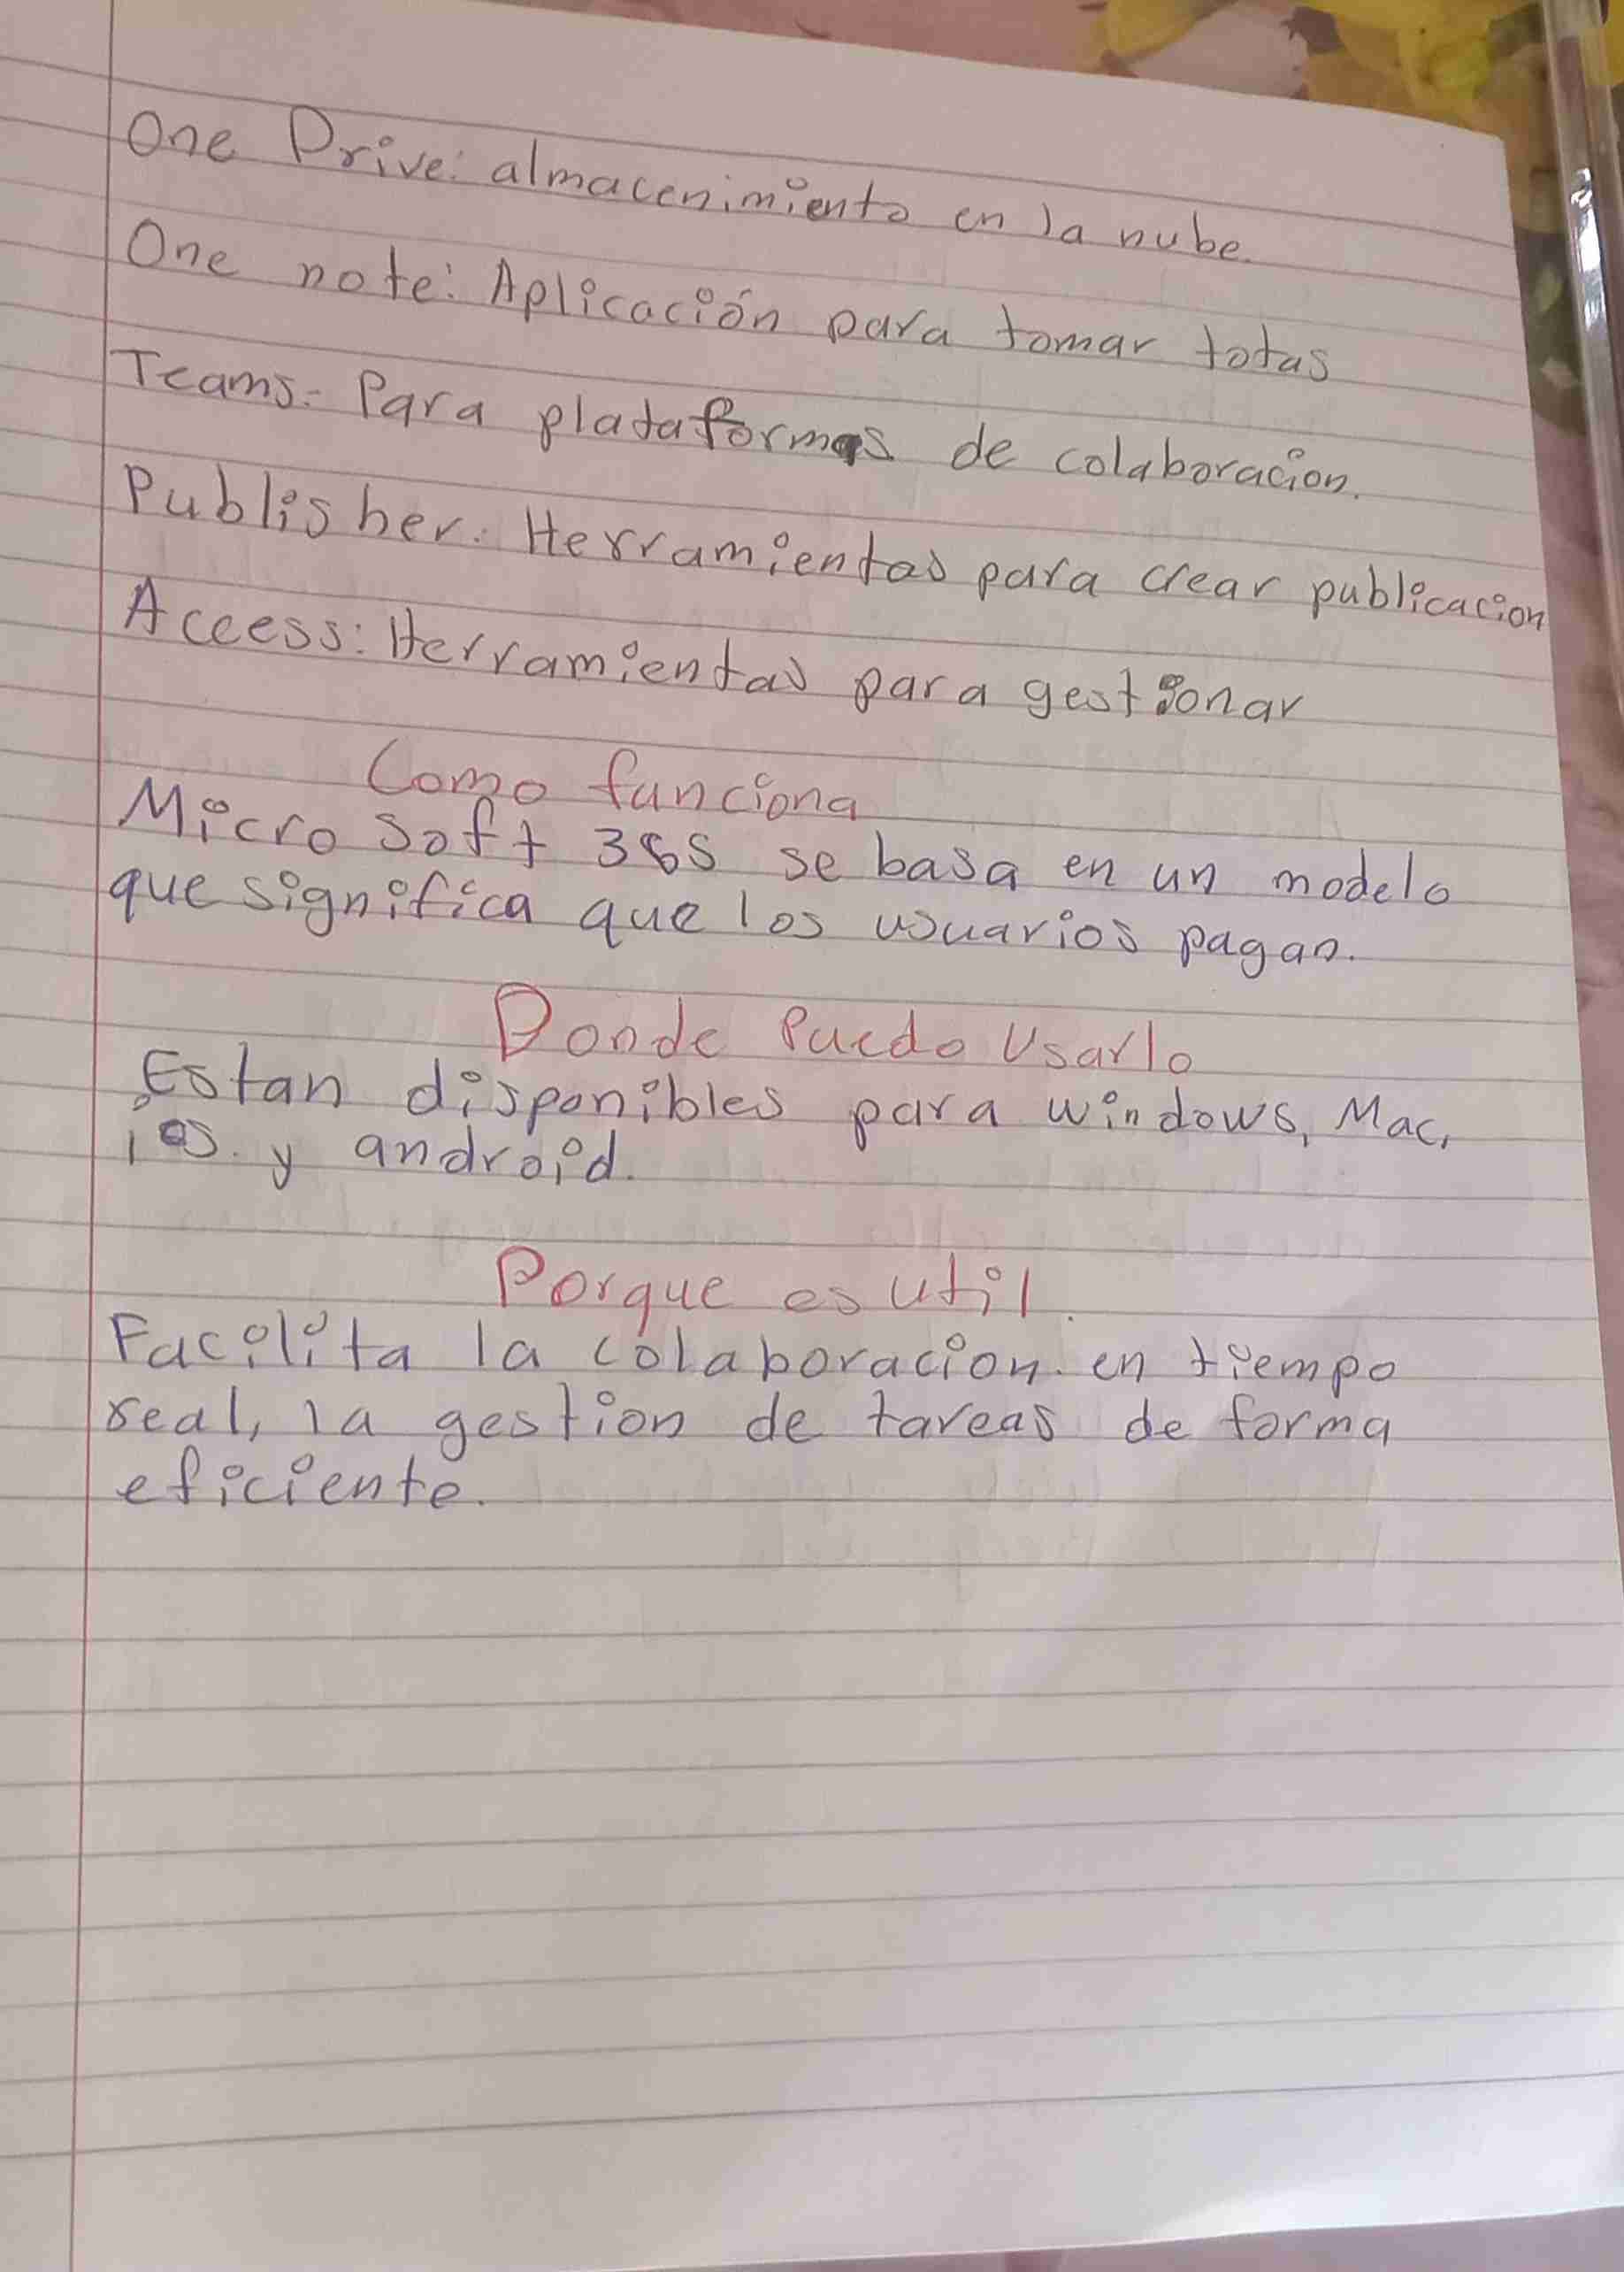 One Drive: almacenimiento en la nube.
One note: Aplicación para tomar totas
Teams: Para plataformas de colaboracion.
Publisher: Herramientas para crear publicacion
Access: Herramientas para gestionar
Como funciona
Micro Soft 365 se basa en un modelo
que significa que los usuarios pagan.
Donde Puedo Usarlo
Estan disponibles para windows, Mac,
ios y android.
Porque es util.
Facilita la colaboracion en tiempo
real, la gestion de tareas de forma
eficiente.